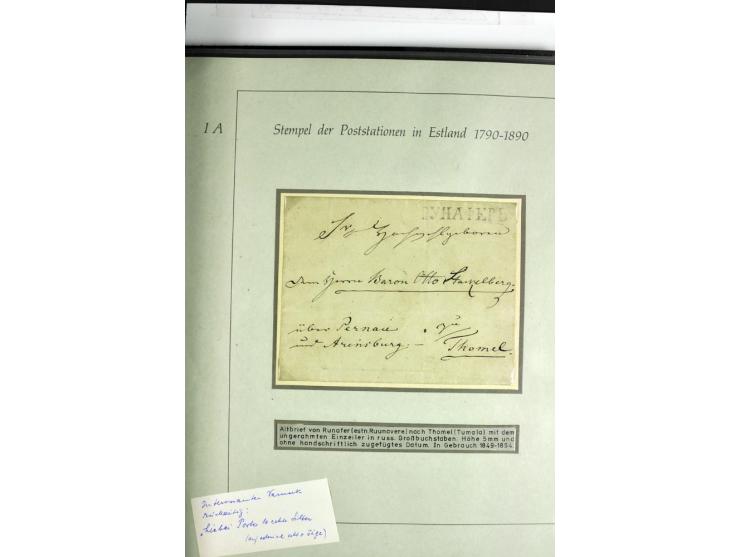 1 A
Stempel der Poststationen in Estland 1790-1890
РУНАФЕРЪ
Sr. Hochwohlgeboren
dem Herrn Baron Otto Stackelberg.
über Pernau zu
und Arensburg. Thomel.
Altbrief von Runafer (estn. Ruunavere) nach Thomel (Tumala) mit dem
ungerahmten Einzeiler in russ. Großbuchstaben. Höhe 5mm und
ohne handschriftlich zugefügtes Datum. In Gebrauch 1849-1854.
Interessanter Vermerk
rückseitig:
hierbei Porto 10 cop. Silber